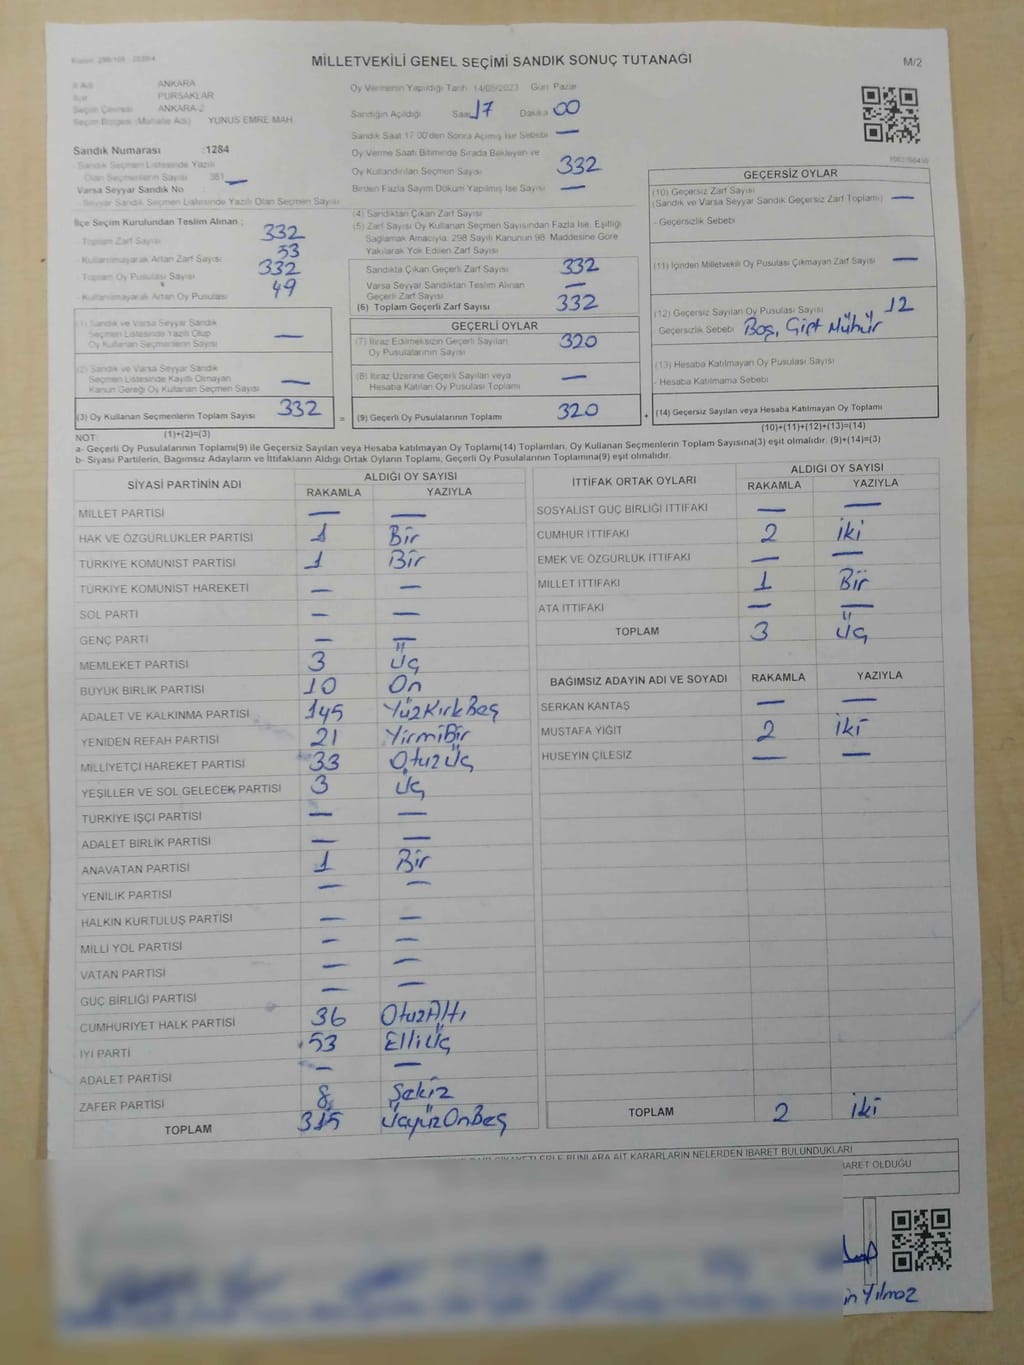 MİLLETVEKİLİ GENEL SEÇİMİ SANDIK SONUÇ TUTANAĞI
M/2
İl Adı ANKARA
İlçe PURSAKLAR
Seçim Çevresi ANKARA-2
Seçim Bölgesi (Mahalle Adı) YUNUS EMRE MAH.
Sandık Numarası :1284
Sandık Seçmen Listesinde Yazılı
Olan Seçmenlerin Sayısı 381 —
Varsa Seyyar Sandık No
Seyyar Sandık Seçmen Listesinde Yazılı Olan Seçmen Sayısı
Oy Vermenin Yapıldığı Tarih 14/05/2023 Gün Pazar
Sandığın Açıldığı Saat 17 Dakika 00
Sandık Saat 17:00'den Sonra Açımış İse Sebebi —
Oy Verme Saati Bitiminde Sırada Bekleyen ve
Oy Kullandırılan Seçmen Sayısı 332
Birden Fazla Sayım Döküm Yapılmış İse Sayısı —
İlçe Seçim Kurulundan Teslim Alınan ;
- Toplam Zarf Sayısı 332
- Kullanılmayarak Artan Zarf Sayısı 53
- Toplam Oy Pusulası Sayısı 332
- Kullanılmayarak Artan Oy Pusulası 49
(1) Sandık ve Varsa Seyyar Sandık
Seçmen Listesinde Yazılı Olup
Oy Kullanan Seçmenlerin Sayısı —
(2) Sandık ve Varsa Seyyar Sandık
Seçmen Listesinde Kayıtlı Olmayan
Kanun Gereği Oy Kullanan Seçmen Sayısı —
(3) Oy Kullanan Seçmenlerin Toplam Sayısı 332
(1)+(2)=(3)
(4) Sandıktan Çıkan Zarf Sayısı
(5) Zarf Sayısı Oy Kullanan Seçmen Sayısından Fazla İse, Eşitliği
Sağlamak Amacıyla, 298 Sayılı Kanunun 98. Maddesine Göre
Yakılarak Yok Edilen Zarf Sayısı
Sandıkta Çıkan Geçerli Zarf Sayısı 332
Varsa Seyyar Sandıktan Teslim Alınan
Geçerli Zarf Sayısı —
(6) Toplam Geçerli Zarf Sayısı 332
GEÇERLİ OYLAR
(7) İtiraz Edilmeksizin Geçerli Sayılan
Oy Pusulalarının Sayısı 320
(8) İtiraz Üzerine Geçerli Sayılan veya
Hesaba Katılan Oy Pusulası Toplamı —
= (9) Geçerli Oy Pusulalarının Toplamı 320 +
GEÇERSİZ OYLAR
(10) Geçersiz Zarf Sayısı
(Sandık ve Varsa Seyyar Sandık Geçersiz Zarf Toplamı) —
- Geçersizlik Sebebi
(11) İçinden Milletvekili Oy Pusulası Çıkmayan Zarf Sayısı —
(12) Geçersiz Sayılan Oy Pusulası Sayısı 12
Geçersizlik Sebebi Boş, Çift Mühür
(13) Hesaba Katılmayan Oy Pusulası Sayısı
- Hesaba Katılmama Sebebi
(14) Geçersiz Sayılan veya Hesaba Katılmayan Oy Toplamı
(10)+(11)+(12)+(13)=(14)
NOT
a- Geçerli Oy Pusulalarının Toplamı(9) ile Geçersiz Sayılan veya Hesaba katılmayan Oy Toplamı(14) Toplamları, Oy Kullanan Seçmenlerin Toplam Sayısına(3) eşit olmalıdır. (9)+(14)=(3)
b- Siyasi Partilerin, Bağımsız Adayların ve İttifakların Aldığı Ortak Oyların Toplamı, Geçerli Oy Pusulalarının Toplamına(9) eşit olmalıdır.
SİYASİ PARTİNİN ADI ALDIĞI OY SAYISI
RAKAMLA YAZIYLA
MİLLET PARTİSİ — —
HAK VE ÖZGÜRLÜKLER PARTİSİ 1 Bir
TÜRKİYE KOMÜNİST PARTİSİ 1 Bir
TÜRKİYE KOMÜNİST HAREKETİ — —
SOL PARTİ — —
GENÇ PARTİ — —
MEMLEKET PARTİSİ 3 Üç
BÜYÜK BİRLİK PARTİSİ 10 On
ADALET VE KALKINMA PARTİSİ 145 YüzKırkBeş
YENİDEN REFAH PARTİSİ 21 YirmiBir
MİLLİYETÇİ HAREKET PARTİSİ 33 OtuzÜç
YEŞİLLER VE SOL GELECEK PARTİSİ 3 Üç
TÜRKİYE İŞÇİ PARTİSİ — —
ADALET BİRLİK PARTİSİ — —
ANAVATAN PARTİSİ 1 Bir
YENİLİK PARTİSİ — —
HALKIN KURTULUŞ PARTİSİ — —
MİLLİ YOL PARTİSİ — —
VATAN PARTİSİ — —
GÜÇ BİRLİĞİ PARTİSİ — —
CUMHURİYET HALK PARTİSİ 36 OtuzAltı
İYİ PARTİ 53 ElliÜç
ADALET PARTİSİ — —
ZAFER PARTİSİ 8 Sekiz
TOPLAM 315 ÜçyüzOnBeş
İTTİFAK ORTAK OYLARI ALDIĞI OY SAYISI
RAKAMLA YAZIYLA
SOSYALİST GÜÇ BİRLİĞİ İTTİFAKI — —
CUMHUR İTTİFAKI 2 iki
EMEK VE ÖZGÜRLÜK İTTİFAKI — —
MİLLET İTTİFAKI 1 Bir
ATA İTTİFAKI — —
TOPLAM 3 Üç
BAĞIMSIZ ADAYIN ADI VE SOYADI RAKAMLA YAZIYLA
SERKAN KANTAŞ — —
MUSTAFA YİĞİT 2 iki
HÜSEYİN ÇİLESİZ — —
TOPLAM 2 iki
BUNLARA AİT KARARLARIN NELERDEN İBARET BULUNDUKLARI
OLDUĞU
Yılmaz